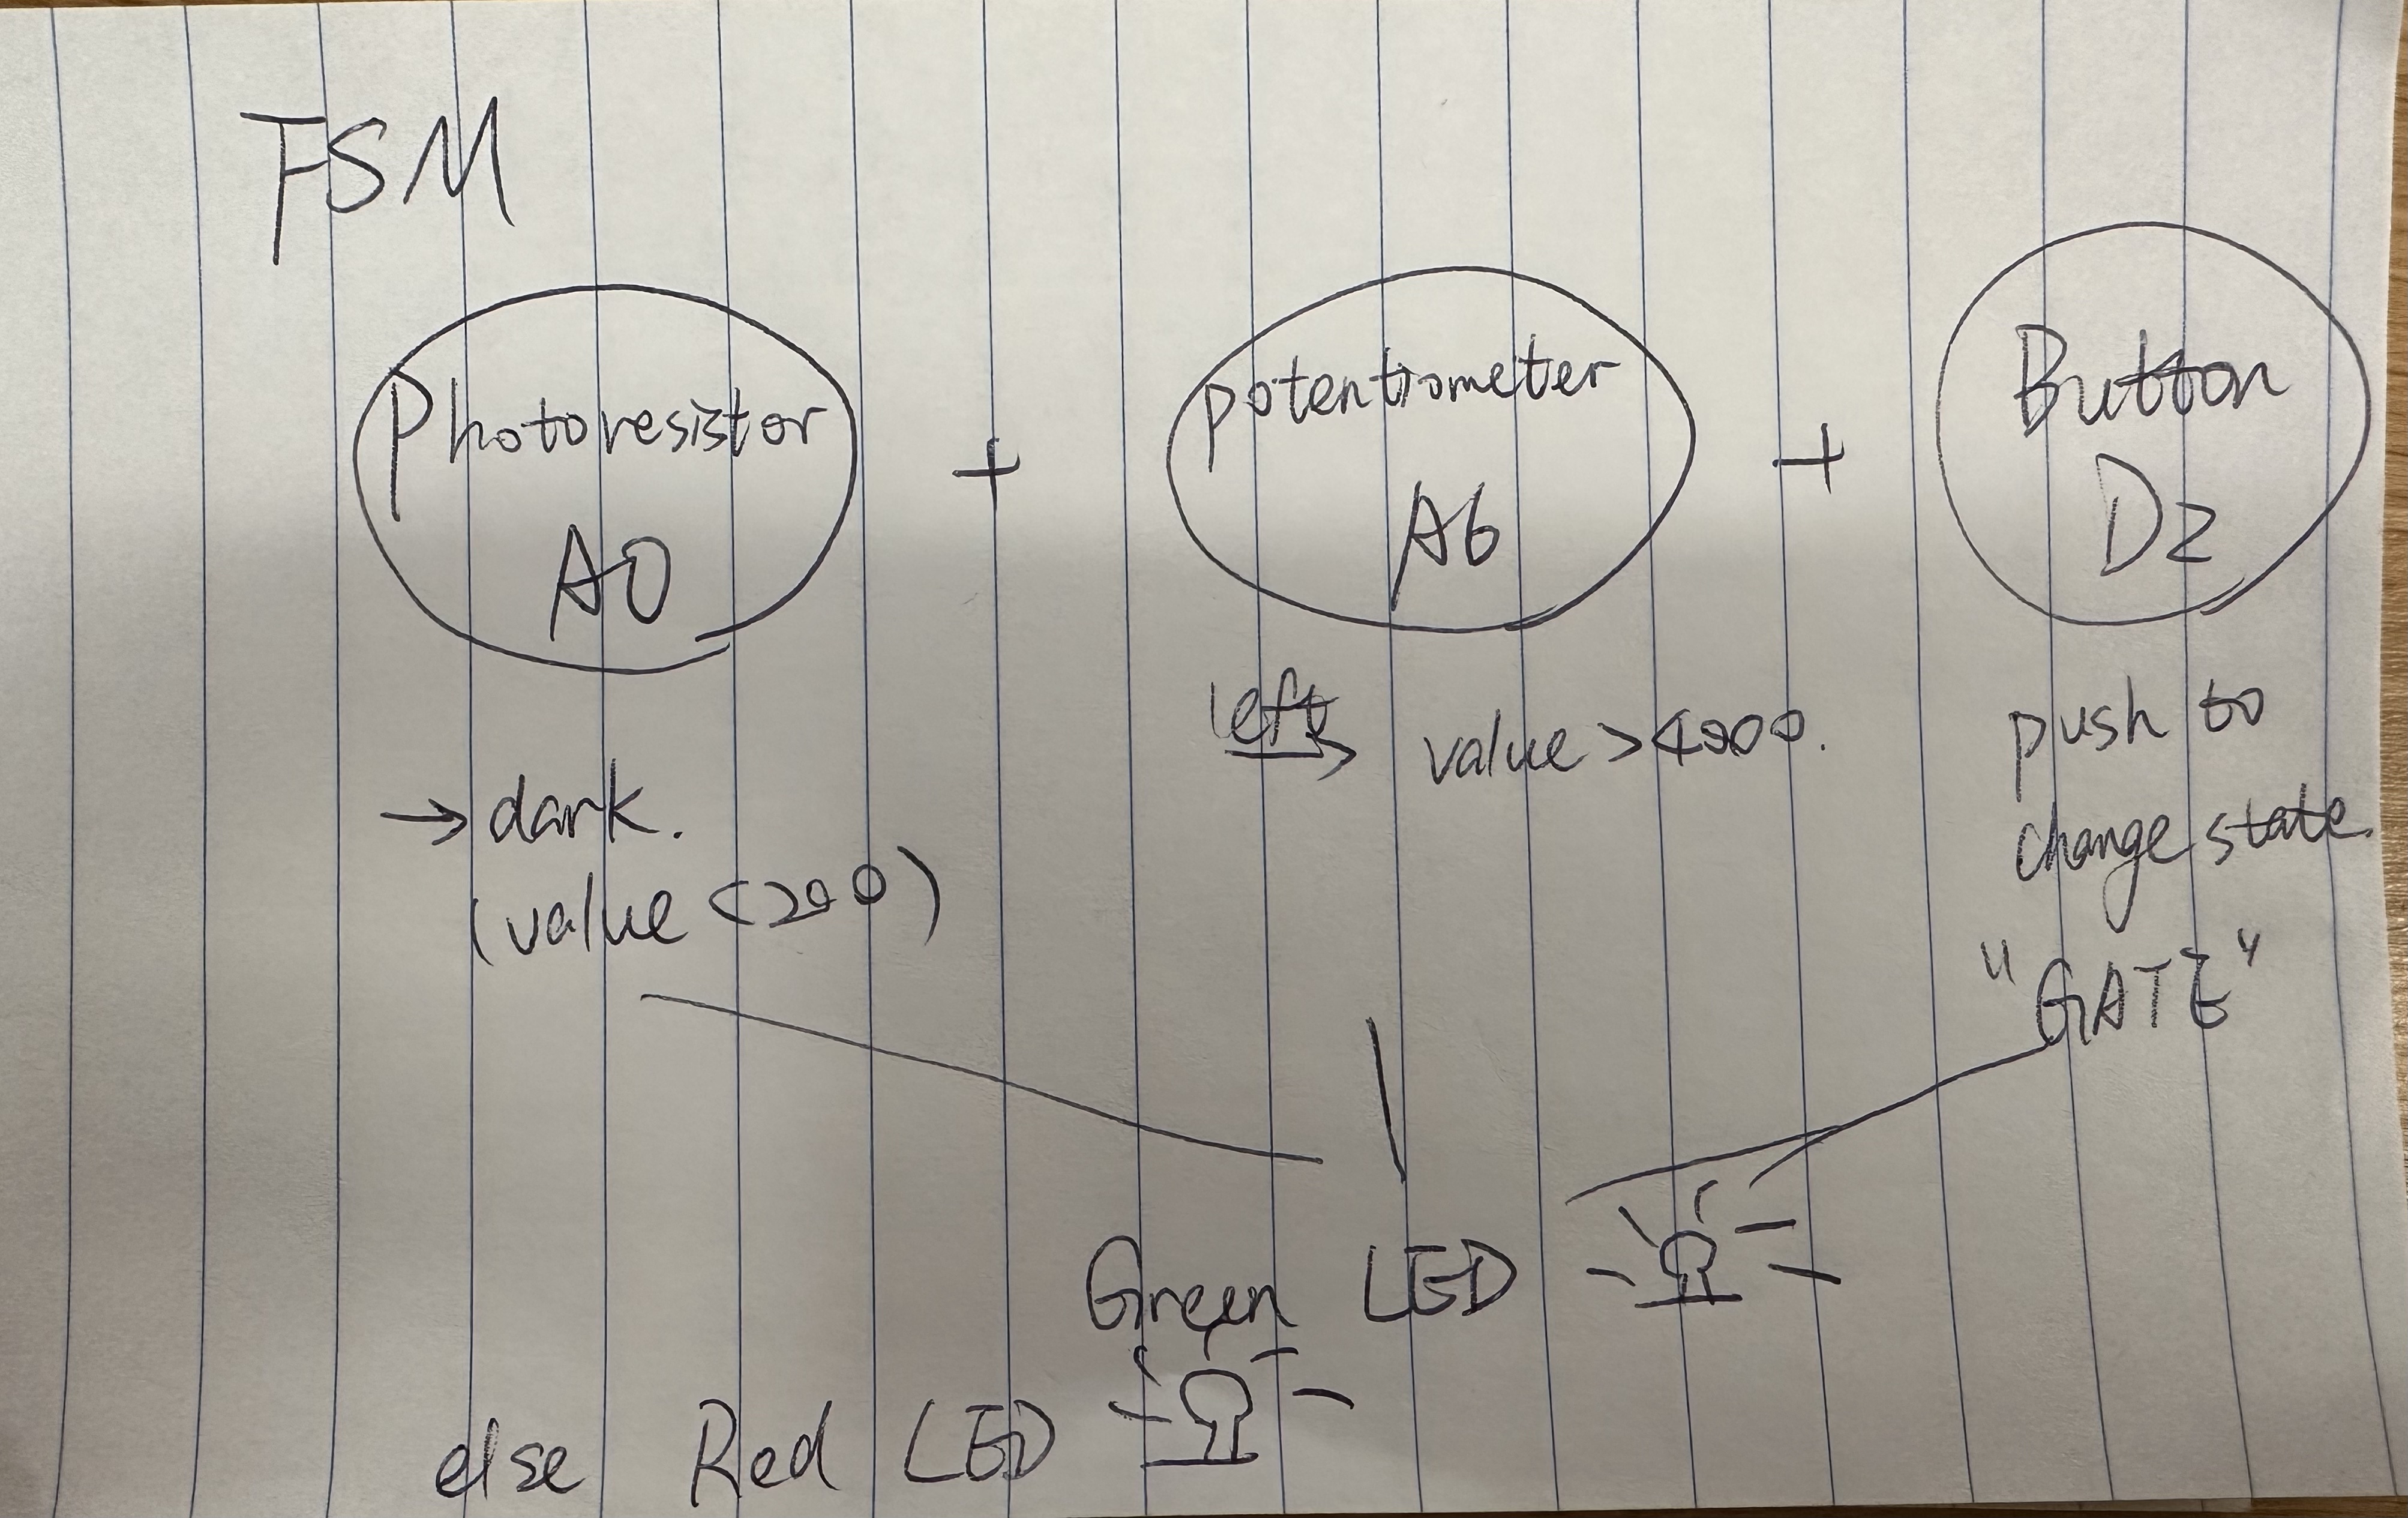 FSM
Photoresistor
A0
+
potentiometer
A6
+
Button
D2
→ dark.
(value < 200)
left
→ value > 4000.
push to
change state.
"GATE"
Green LED
else Red LED